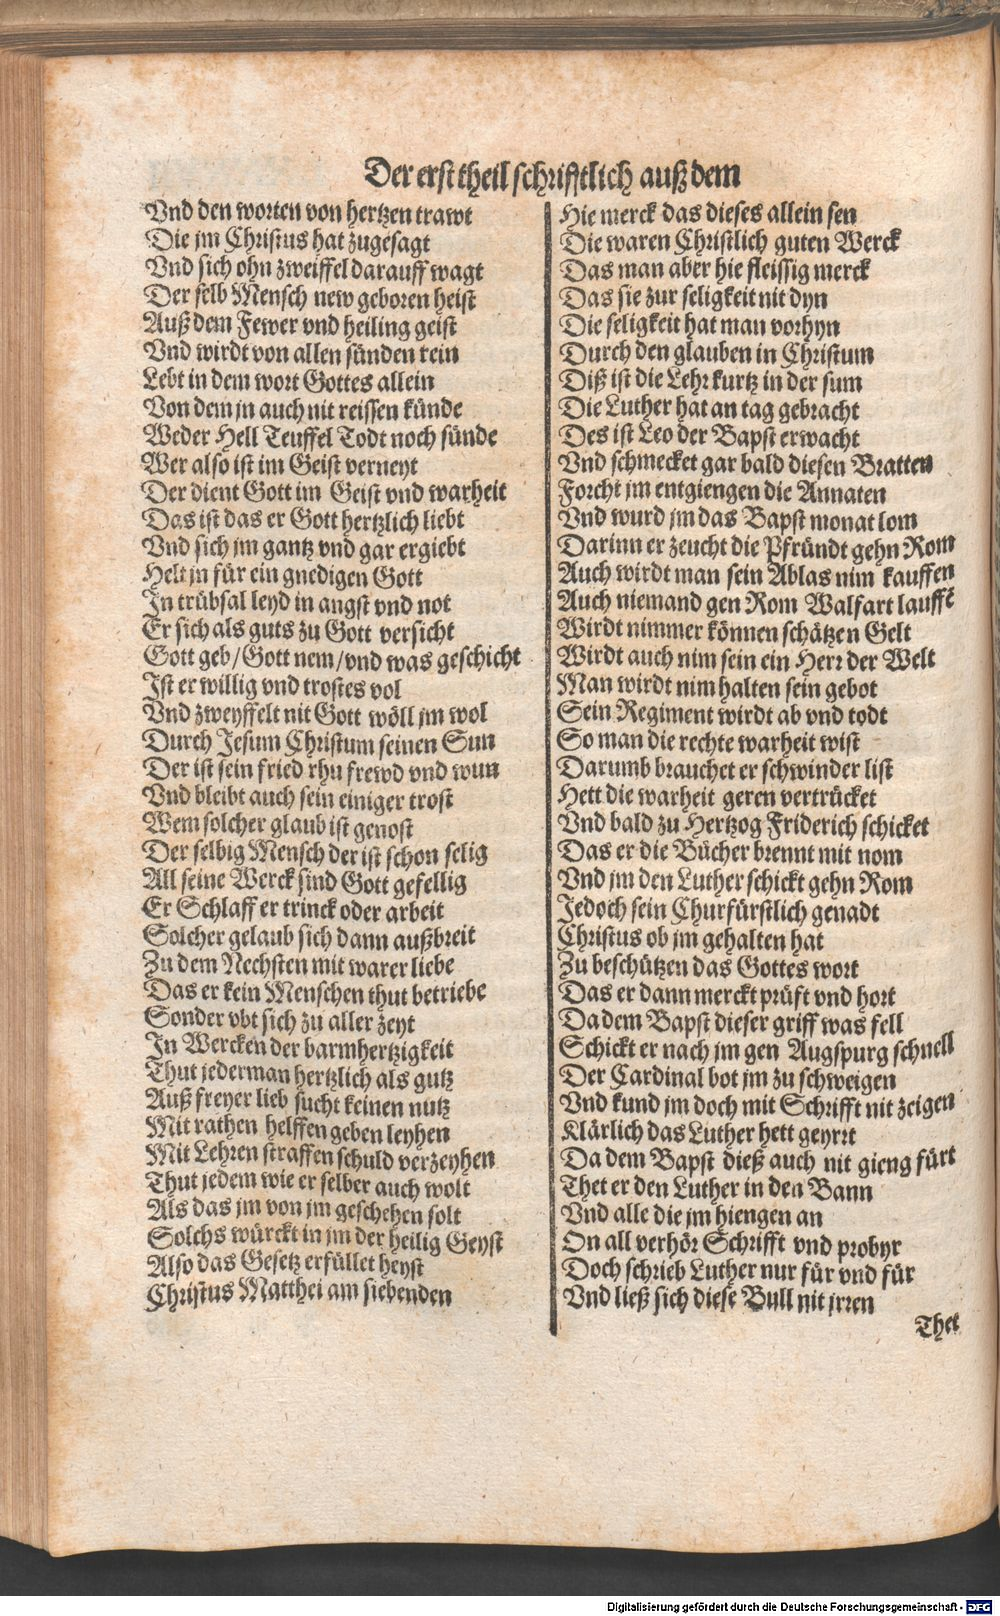 Der erst theil schrifftlich auß dem
Vnd den worten von hertzen trawt
Die jm Christus hat zugesagt
Vnd sich ohn zweiffel darauff wagt
Der selb Mensch new geboren heist
Auß dem Fewer vnd heiling geist
Vnd wirdt von allen sünden rein
Lebt in dem wort Gottes allein
Von dem jn auch nit reissen künde
Weder Hell Teuffel Todt noch sünde
Wer also ist im Geist verneyt
Der dient Gott im Geist vnd warheit
Das ist das er Gott hertzlich liebt
Vnd sich jm gantz vnd gar ergiebt
Helt jn für ein gnedigen Gott
In trübsal leyd in angst vnd not
Er sich als guts zu Gott versicht
Gott geb/Gott nem/vnd was geschicht
Ist er willig vnd trostes vol
Vnd zweyffelt nit Gott wöll jm wol
Durch Jesum Christum seinen Sun
Der ist sein fried rhu frewd vnd wun
Vnd bleibt auch sein einiger trost
Wem solcher glaub ist genost
Der selbig Mensch der ist schon selig
All seine Werck sind Gott gefellig
Er Schlaff er trinck oder arbeit
Solcher gelaub sich dann außbreit
Zu dem Nechsten mit warer liebe
Das er kein Menschen thut betriebe
Sonder vbt sich zu aller zeyt
In Wercken der barmhertzigkeit
Thut jederman hertzlich als gutz
Auß freyer lieb sucht keinen nutz
Mit rathen helffen geben leyhen
Mit Lehren straffen schuld verzeyhen
Thut jedem wie er selber auch wolt
Als das jm von jm geschehen solt
Solchs würckt in jm der heilig Geyst
Also das Gesetz erfüllet heyst
Christus Matthei am siebenden
Hie merck das dieses allein sen
Die waren Christlich guten Werck
Das man aber hie fleissig merck
Das sie zur seligkeit nit dyn
Die seligkeit hat man vorhyn
Durch den glauben in Christum
Diß ist die Lehr kurtz in der sum
Die Luther hat an tag gebracht
Des ist Leo der Bapst erwacht
Vnd schmecket gar bald diesen Bratten
Forcht jm entgiengen die Annaten
Vnd wurd jm das Bapst monat lom
Darinn er zeucht die Pfründt gehn Rom
Auch wirdt man sein Ablas nim kauffen
Auch niemand gen Rom Walfart lauffē
Wirdt nimmer können schätzen Gelt
Wirdt auch nim sein ein Herr der Welt
Man wirdt nim halten sein gebot
Sein Regiment wirdt ab vnd todt
So man die rechte warheit wist
Darumb brauchet er schwinder list
Hett die warheit geren vertrücket
Vnd bald zu Hertzog Friderich schicket
Das er die Bücher brennt mit nom
Vnd jm den Luther schickt gehn Rom
Jedoch sein Churfürstlich genadt
Christus ob jm gehalten hat
Zu beschützen das Gottes wort
Das er dann merckt prüft vnd hort
Da dem Bapst dieser griff was fell
Schickt er nach jm gen Augspurg schnell
Der Cardinal bot jm zu schweigen
Vnd kund jm doch mit Schrifft nit zeigen
Klärlich das Luther hett geyrrt
Da dem Bapst dieß auch nit gieng fürt
Thet er den Luther in den Bann
Vnd alle die jm hiengen an
On all verhör Schrifft vnd probyr
Doch schrieb Luther nur für vnd für
Vnd ließ sich diese Bull nit jrren
Thet
Digitalisierung gefördert durch die Deutsche Forschungsgemeinschaft - DFG